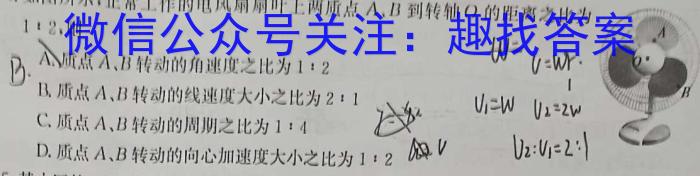 正常工作的电风扇扇叶上两质点 A、B 到转轴 O 的距离之比为
1∶2,
微信公众号关注：趣找答案
A. 质点 A、B 转动的角速度之比为 1∶2
B. 质点 A、B 转动的线速度大小之比为 2∶1
C. 质点 A、B 转动的周期之比为 1∶4
D. 质点 A、B 转动的向心加速度大小之比为 1∶2
B.
V=wr
V₁=W V₂=2W
V₂:V₁=2:1
A
O
B